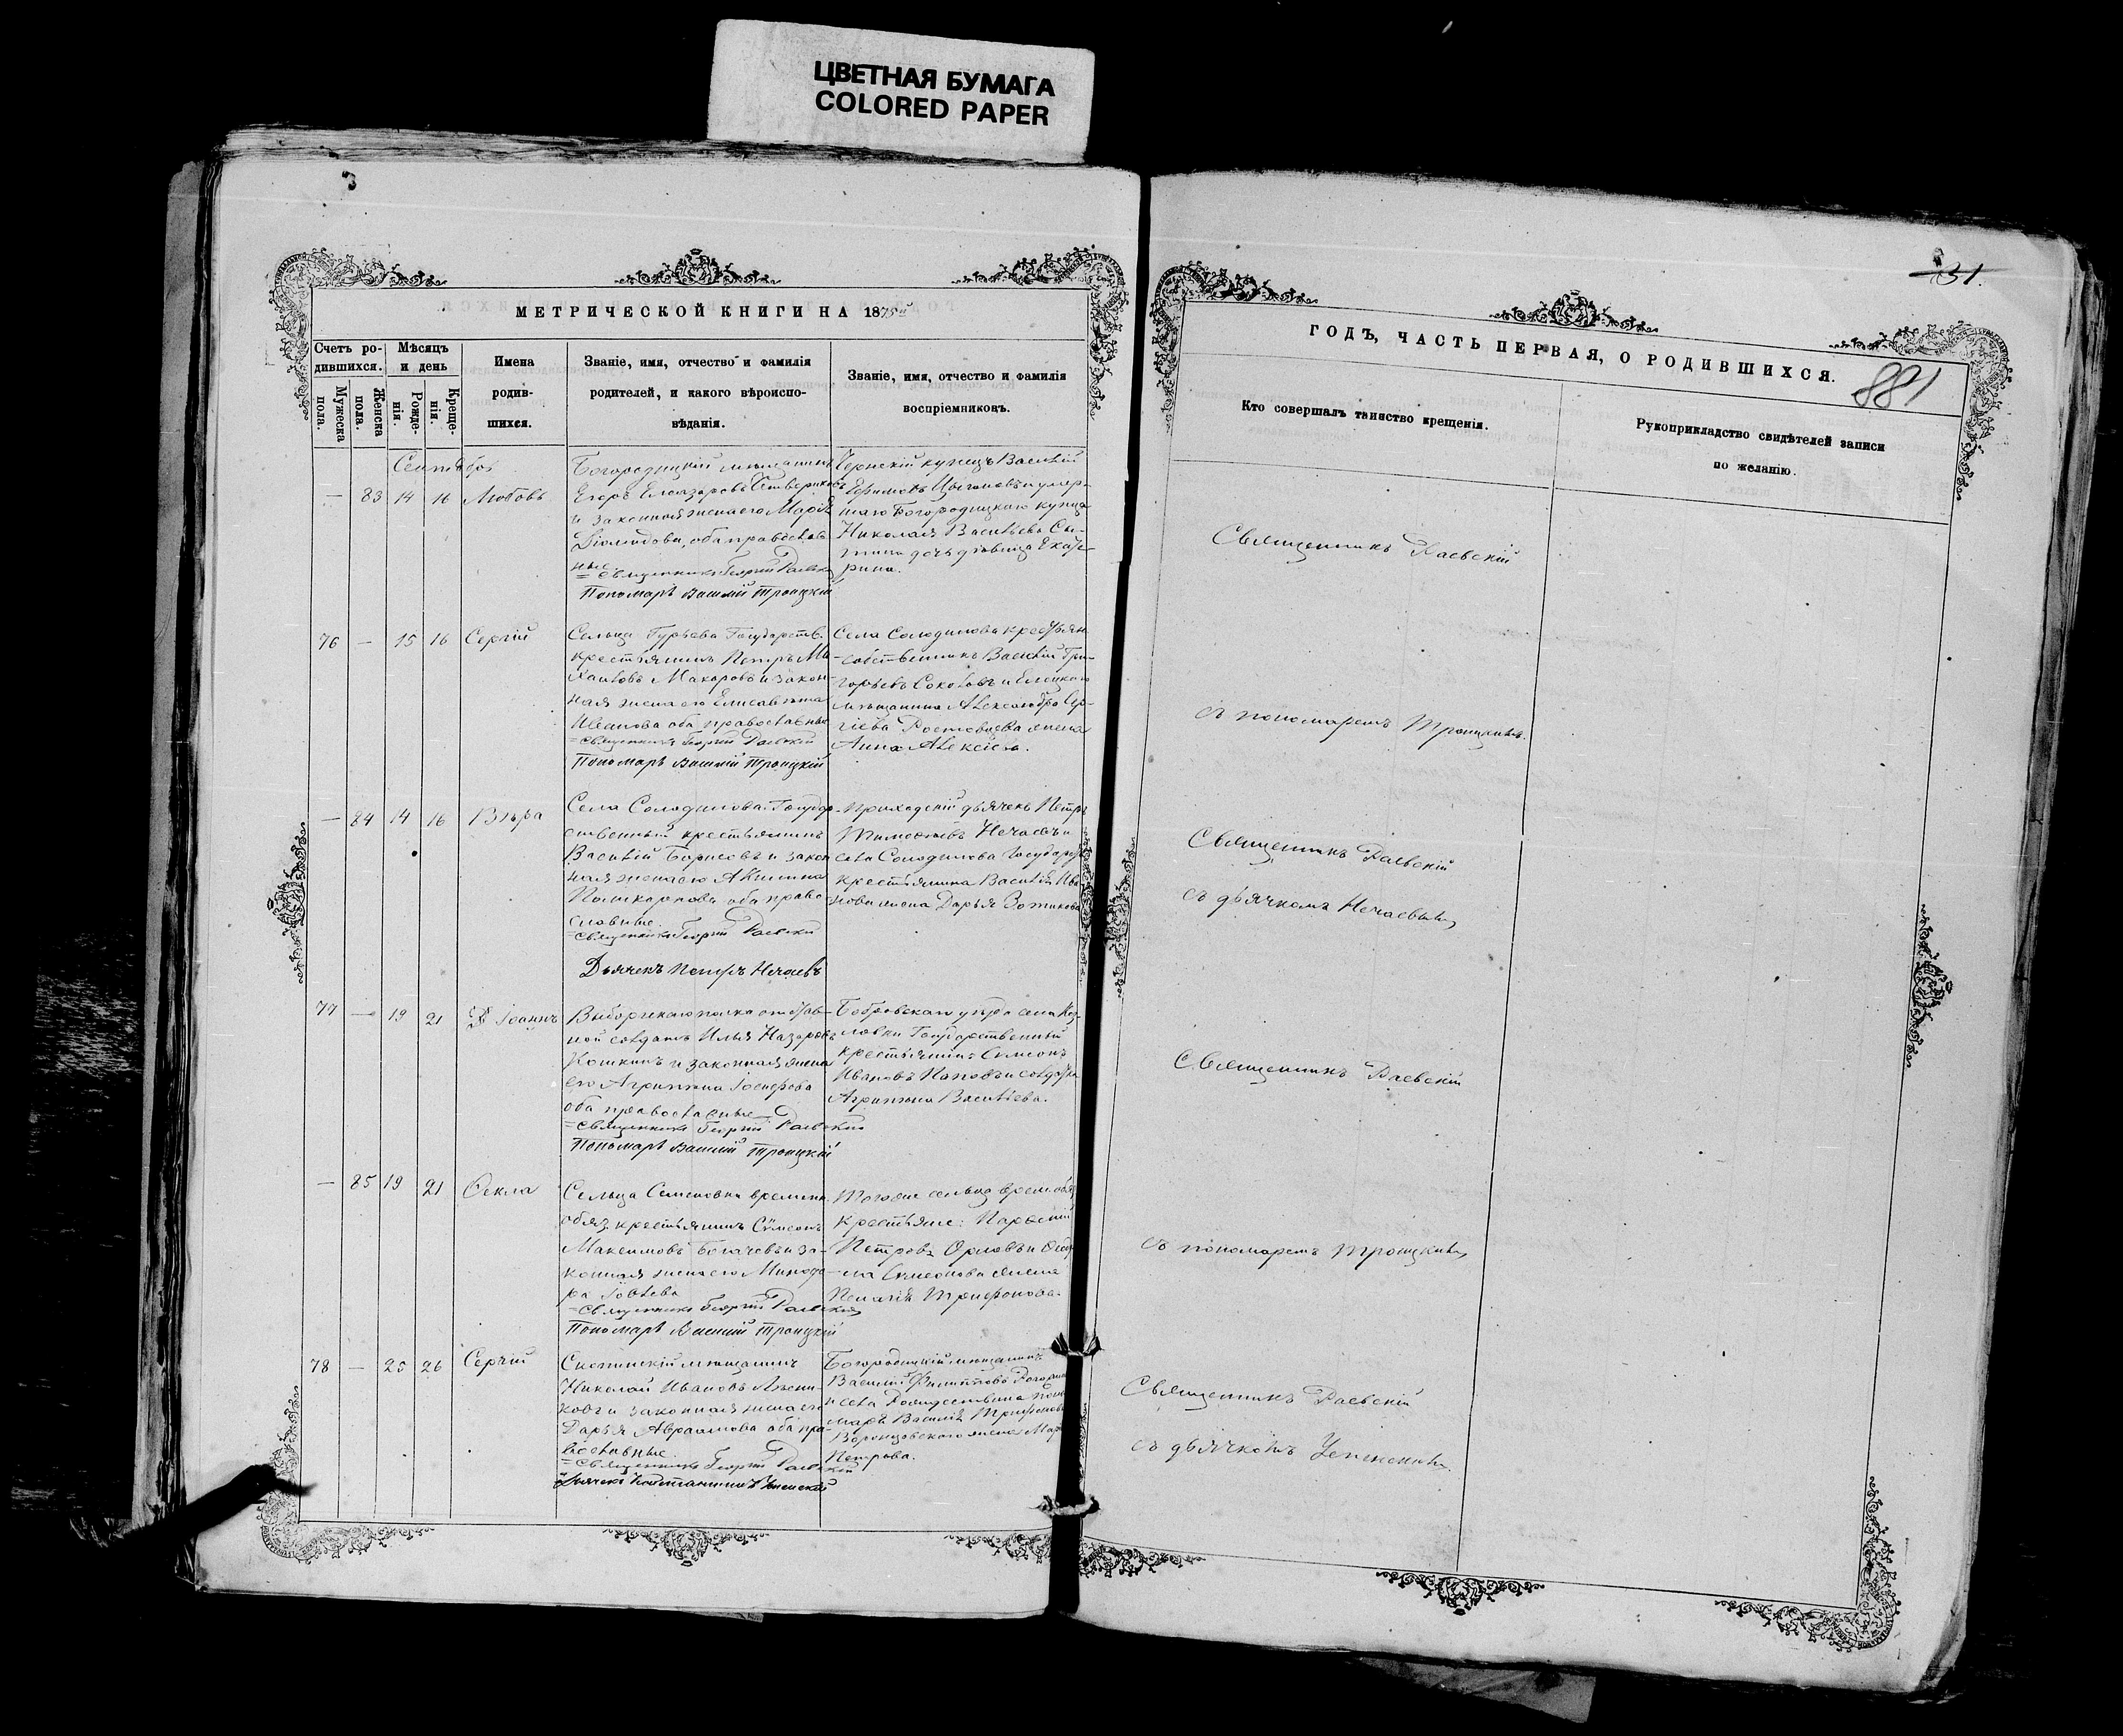 ЦВЕТНАЯ БУМАГА
COLORED PAPER
МЕТРИЧЕСКОЙ КНИГИ НА 1875й
Счетъ ро-
дившихся.
Мужеска
пола.
Женска
пола.
Мѣсяцъ
и день
Рожде-
нія.
Креще-
нія.
Имена
родив-
шихся.
Званіе, имя, отчество и фамилія
родителей, и какого вѣроиспо-
вѣданія.
Званіе, имя, отчество и фамилія
воспріемниковъ.
Сентябрь
— 83 14 16 Любовь
Богородицкій мѣщанинъ
Егоръ Елеазаровъ
и законная жена его Марія
Діомидова, оба православ-
ные
= Священникъ Георгій Раевскій
Пономарь Василій Троицкій
Чернскій купецъ Василій
Ефимовъ Цыгановъ и умер-
шаго Богородицкаго купца
Николая Васильева Сы-
тина дочь дѣвица Екате-
рина.
76 — 15 16 Сергій
Сельца Гурьева Государств.
крестьянинъ Петръ Ми-
хаиловъ Макаровъ и закон-
ная жена его Елисавета
Иванова оба православные
= Священникъ Георгій Раевскій
Пономарь Василій Троицкій
Села Солодилова крестьян.
собственникъ Василій Гри-
горьевъ Соколовъ и Елецкаго
мѣщанина Александра Сер-
гіева Ростовцева жена
Анна Алексіева.
— 84 14 16 Вѣра
Села Солодилова Государ-
ственный крестьянинъ
Василій Борисовъ и закон
ная жена его Акилина
Поликарпова оба право
славные
= Священникъ Георгій Раевскій
Дьячекъ Петръ Нечаевъ
Приходскій дьячекъ Петръ
Тимофеевъ Нечаевъ и
села Солодилова Государст
крестьянина Василія Ива
нова жена Дарья Зотикова
77 — 19 21 Іоаннъ
Выборгскаго полка отстав-
ной солдатъ Илья Назаровъ
Кошкинъ и законная жена
его Агрипина Іосифова
оба православные
= Священникъ Георгій Раевскій
Пономарь Василій Троицкій
Бобровскаго уѣзда села Коз-
ловки Государственный
крестьянинъ Симеонъ
Ивановъ Поповъ и солдатка
Агрипина Васильева.
— 85 19 21 Ѳекла
Сельца Семеновки временн.
обяз. крестьянинъ Симеонъ
Максимовъ Богачевъ и за-
конная жена его Минодо-
ра Іовлева
= Священникъ Георгій Раевскій
Пономарь Василій Троицкій
Тогоже сельца врем. обяз
крестьяне: Парѳеній
Петровъ Орловъ и
Симеонова жена
Пелагія Трифонова.
78 — 25 26 Сергій
Скопинскій мѣщанинъ
Николай Ивановъ
и законная жена его
Дарья Авраамова оба пра-
вославные.
= Священникъ Георгій Раевскій
Дьячекъ Константинъ Успенскій
Богородицкій мѣщанинъ
Василій Филиповъ
и села Рождествина поно
марь Василія Трифонова
Воронцовскаго жена Марія
Петрова.
31.
881
ГОДЪ, ЧАСТЬ ПЕРВАЯ, О РОДИВШИХСЯ.
Кто совершалъ таинство крещенія.
Рукоприкладство свидѣтелей записи
по желанію.
Священникъ Раевскій
съ пономаремъ Троицкимъ.
Священникъ Раевскій
съ дьячкомъ Нечаевымъ
Священникъ Раевскій
съ пономаремъ Троицкимъ
Священникъ Раевскій
съ дьячкомъ Успенскимъ.